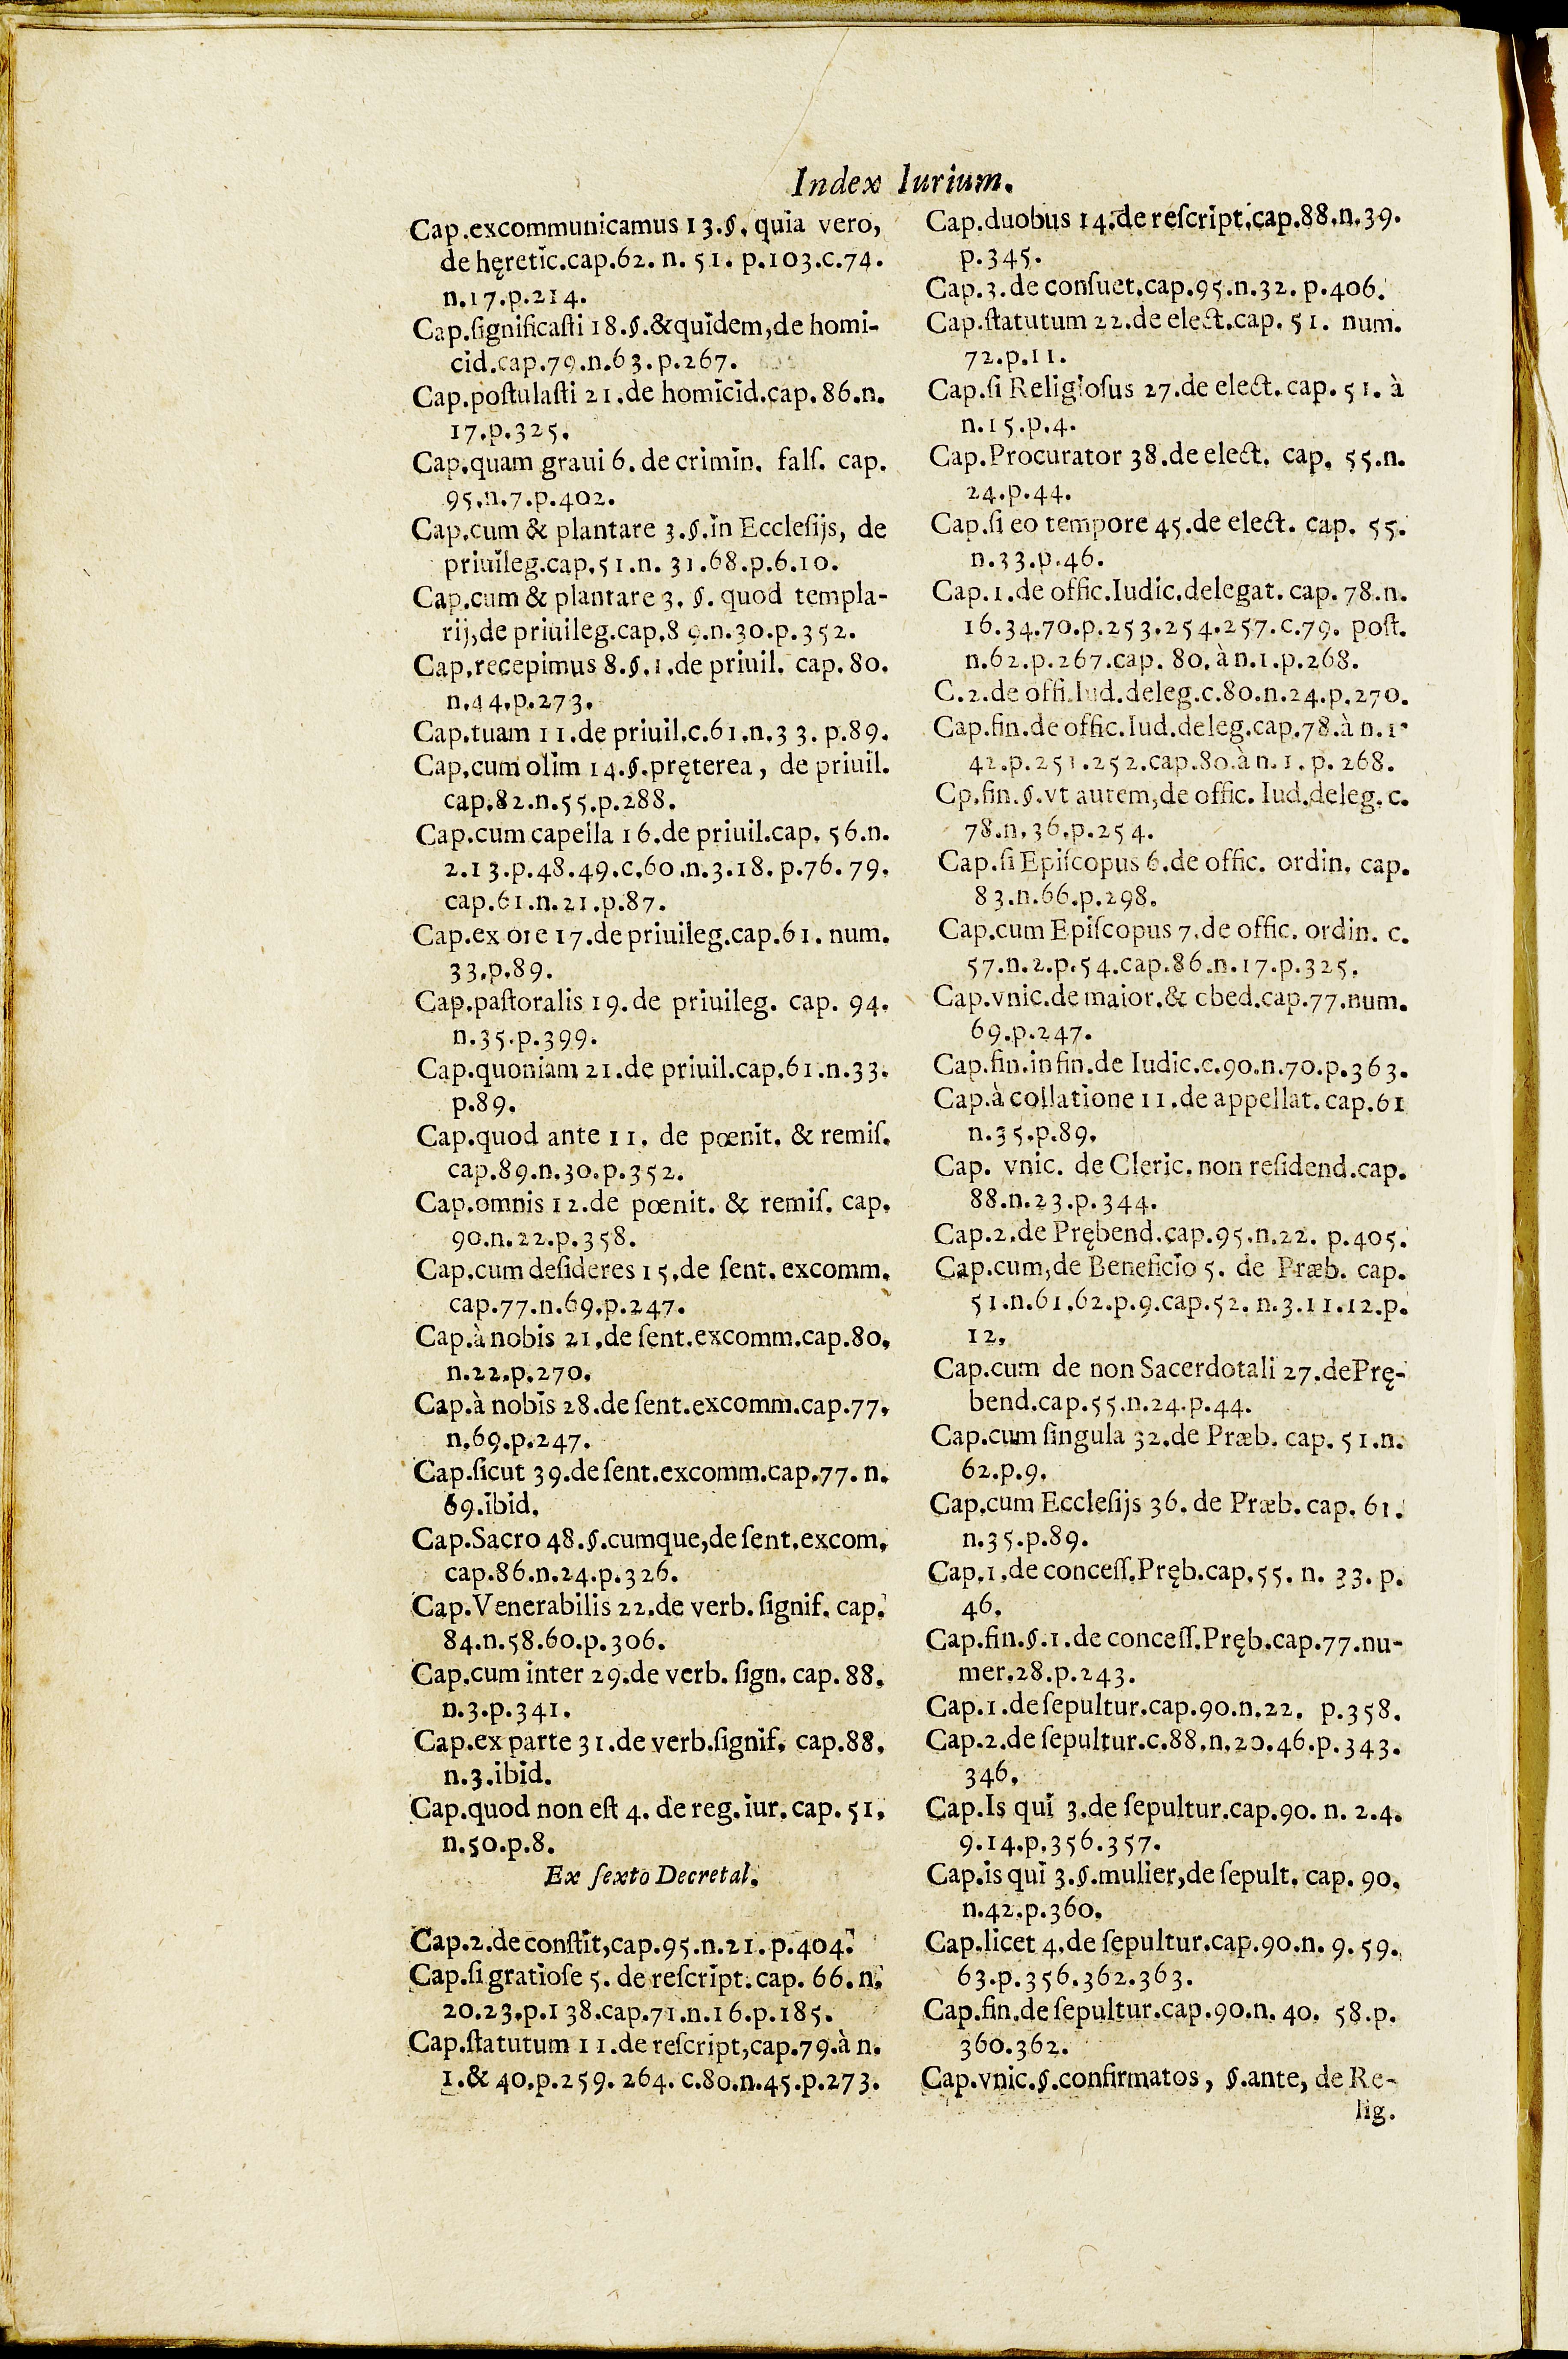 Index Iurium.
Cap.excommunicamus 13.§. quia vero,
de hęretic.cap.62. n. 51. p.103.c.74.
n.17.p.214.
Cap.ſignificaſti 18.§.&quidem,de homi-
cid.cap.79.n.63.p.267.
Cap.poſtulaſti 21.de homicid.cap.86.n.
17.p.325.
Cap.quam graui 6. de crimin. falſ. cap.
95.n.7.p.402.
Cap.cum & plantare 3.§.in Eccleſijs, de
priuileg.cap.51.n. 31.68.p.6.10.
Cap.cum & plantare 3. §. quod templa-
rij,de priuileg.cap.89.n.30.p.352.
Cap.recepimus 8.§.1.de priuil. cap. 80.
n.44.p.273.
Cap.tuam 11.de priuil.c.61.n.33. p.89.
Cap.cum olim 14.§.pręterea, de priuil.
cap.82.n.55.p.288.
Cap.cum capella 16.de priuil.cap. 56.n.
2.13.p.48.49.c.60.n.3.18. p.76.79.
cap.61.n.21.p.87.
Cap.ex ore 17.de priuileg.cap.61. num.
33.p.89.
Cap.paſtoralis 19.de priuileg. cap. 94.
n.35.p.399.
Cap.quoniam 21.de priuil.cap.61.n.33.
p.89.
Cap.quod ante 11. de pœnit. & remiſ.
cap.89.n.30.p.352.
Cap.omnis 12.de pœnit. & remiſ. cap.
90.n.22.p.358.
Cap.cum deſideres 15.de ſent. excomm.
cap.77.n.69.p.247.
Cap.à nobis 21.de ſent.excomm.cap.80.
n.22.p.270.
Cap.à nobis 28.de ſent.excomm.cap.77.
n.69.p.247.
Cap.ſicut 39.de ſent.excomm.cap.77. n.
69.ibid.
Cap.Sacro 48.§.cumque,de ſent.excom.
cap.86.n.24.p.326.
Cap.Venerabilis 22.de verb. ſignif. cap.
84.n.58.60.p.306.
Cap.cum inter 29.de verb. ſign. cap. 88.
n.3.p.341.
Cap.ex parte 31.de verb.ſignif. cap.88.
n.3.ibid.
Cap.quod non eſt 4. de reg. iur. cap. 51.
n.50.p.8.
Ex ſexto Decretal.
Cap.2.de conſtit,cap.95.n.21.p.404.
Cap.ſi gratioſe 5. de reſcript.cap. 66.n.
20.23.p.138.cap.71.n.16.p.185.
Cap.ſtatutum 11.de reſcript,cap.79.à n.
1.& 40.p.259. 264. c.80.n.45.p.273.
Cap.duobus 14.de reſcript.cap.88.n.39.
p.345.
Cap.3.de conſuet.cap.95.n.32. p.406.
Cap.ſtatutum 22.de elect.cap. 51. num.
72.p.11.
Cap.ſi Religioſus 27.de elect.cap. 51. à
n.15.p.4.
Cap.Procurator 38.de elect. cap. 55.n.
24.p.44.
Cap.ſi eo tempore 45.de elect. cap. 55.
n.33.p.46.
Cap.1.de offic.Iudic.delegat. cap. 78.n.
16.34.70.p.253.254.257.c.79. poſt.
n.62.p.267.cap. 80. à n.1.p.268.
C.2.de offi.Iud.deleg.c.80.n.24.p.270.
Cap.fin.de offic.Iud.deleg.cap.78.à n.1.
42.p.251.252.cap.80.à n.1. p. 268.
Cp.fin.§.vt autem,de offic. Iud.deleg. c.
78.n.36.p.254.
Cap.ſi Epiſcopus 6.de offic. ordin. cap.
83.n.66.p.298.
Cap.cum Epiſcopus 7.de offic. ordin. c.
57.n.2.p.54.cap.86.n.17.p.325.
Cap.vnic.de maior.& cbed.cap.77.num.
69.p.247.
Cap.fin.in fin.de Iudic.c.90.n.70.p.363.
Cap.à collatione 11.de appellat.cap.61
n.35.p.89.
Cap. vnic. de Cleric. non reſidend.cap.
88.n.23.p.344.
Cap.2.de Prębend.cap.95.n.22. p.405.
Cap.cum,de Beneficio 5. de Præb. cap.
51.n.61.62.p.9.cap.52. n.3.11.12.p.
12.
Cap.cum de non Sacerdotali 27.dePrę-
bend.cap.55.n.24.p.44.
Cap.cum ſingula 32.de Præb. cap. 51.n.
62.p.9.
Cap.cum Eccleſijs 36. de Præb. cap. 61.
n.35.p.89.
Cap.1.de conceſſ.Pręb.cap.55. n. 33. p.
46.
Cap.fin.§.1.de conceſſ.Pręb.cap.77.nu-
mer.28.p.243.
Cap.1.de ſepultur.cap.90.n.22. p.358.
Cap.2.de ſepultur.c.88.n.20.46.p.343.
346.
Cap.Is qui 3.de ſepultur.cap.90. n. 2.4.
9.14.p.356.357.
Cap.is qui 3.§.mulier,de ſepult. cap. 90.
n.42.p.360.
Cap.licet 4.de ſepultur.cap.90.n. 9.59.
63.p.356.362.363.
Cap.fin.de ſepultur.cap.90.n. 40. 58.p.
360.362.
Cap.vnic.§.confirmatos, §.ante, de Re-
lig.